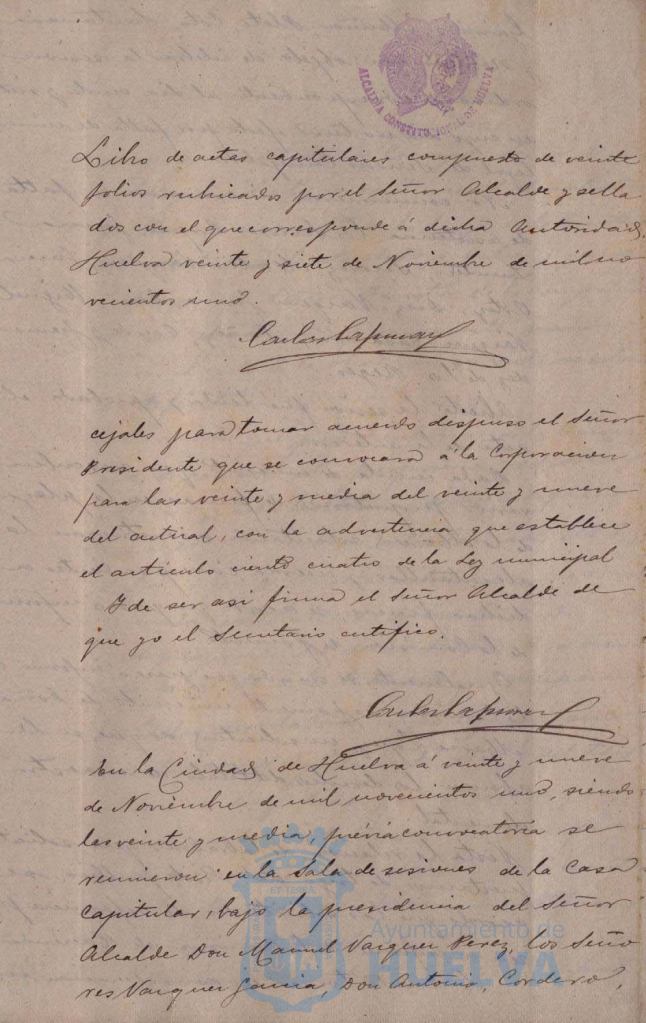 ALCALDIA CONSTITUCIONAL DE HUELVA
Libro de actas capitulares compuesto de veinte
folios rubricados por el Señor Alcalde y sella
dos con el que corresponde á dicha Autoridad.
Huelva veinte y siete de Noviembre de mil no
vecientos uno.
Carlos
cejales para tomar acuerdo dispuso el Señor
Presidente que se convocara á la Corporacion
para las veinte y media del veinte y nueve
del actual, con la advertencia que establece
el articulo ciento cuatro de la Ley municipal
Y de ser asi firma el Señor Alcalde de
que yo el Secretario certifico.
Carlos
En la Ciudad de Huelva á veinte y nueve
de Noviembre de mil novecientos uno, siendo
las veinte y media, prévia convocatoria se
reunieron en la Sala de sesiones de la Casa
Capitular, bajo la presidencia del Señor
Alcalde Don Manuel Vazquez Perez, los Seño
res Vazquez Garcia, Don Antonio, Cordero,
Ayuntamiento de
HUELVA